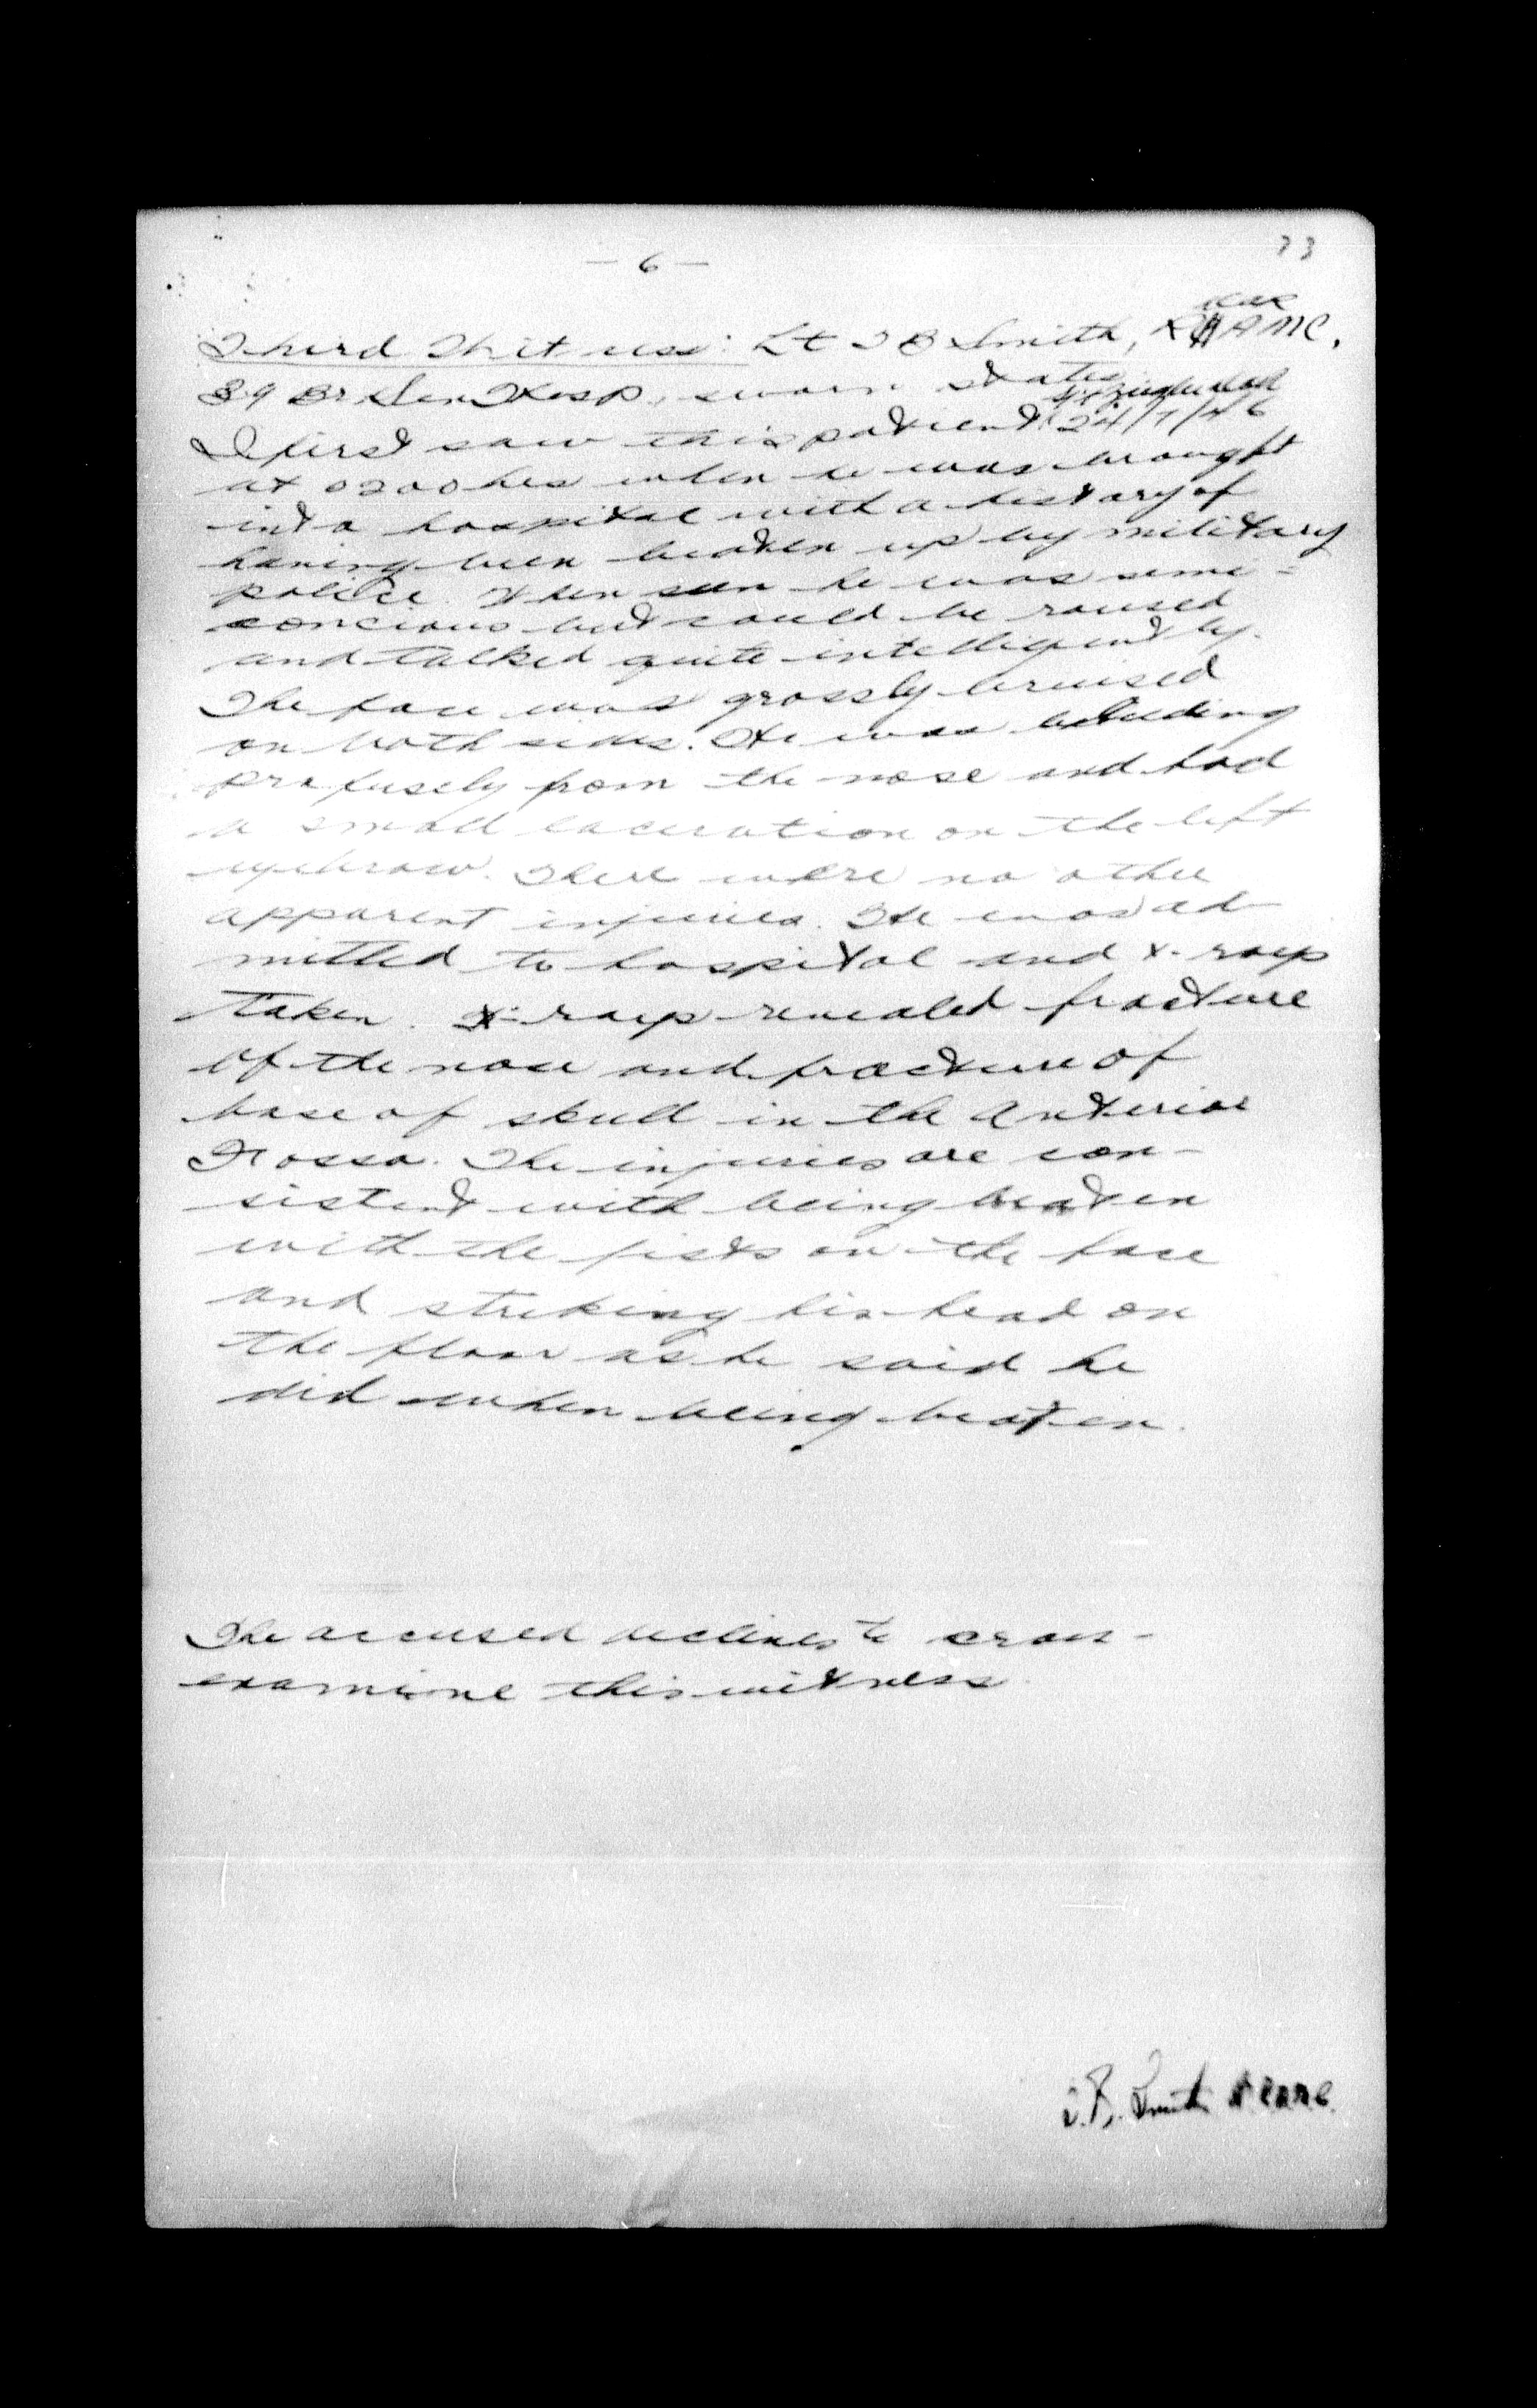 - 6 -
33
Third Witness: Lt I B Smith, RAMC,
29 Br Gen Hosp, sworn states
I first saw this patient 24/7/46
at 0200 hrs when he was brought
into hospital with a history of
having been beaten up by military
police. When seen he was semi-
concious but could be roused
and talked quite intelligently.
The face was grossly bruised
on both sides. He was bleeding
profusely from the nose and had
a small laceration on the left
eyebrow. There were no other
apparent injuries. He was ad-
mitted to hospital and x-ray
taken. X-ray revealed fracture
of the nose and fracture of
base of skull in the Anterior
Fossa. The injuries are con-
sistent with being beaten
with the fists on the face
and striking his head on
the floor as he said he
did when being beaten.
The accused declines to cross-
examine this witness
I.B. Smith Lt RAMC.